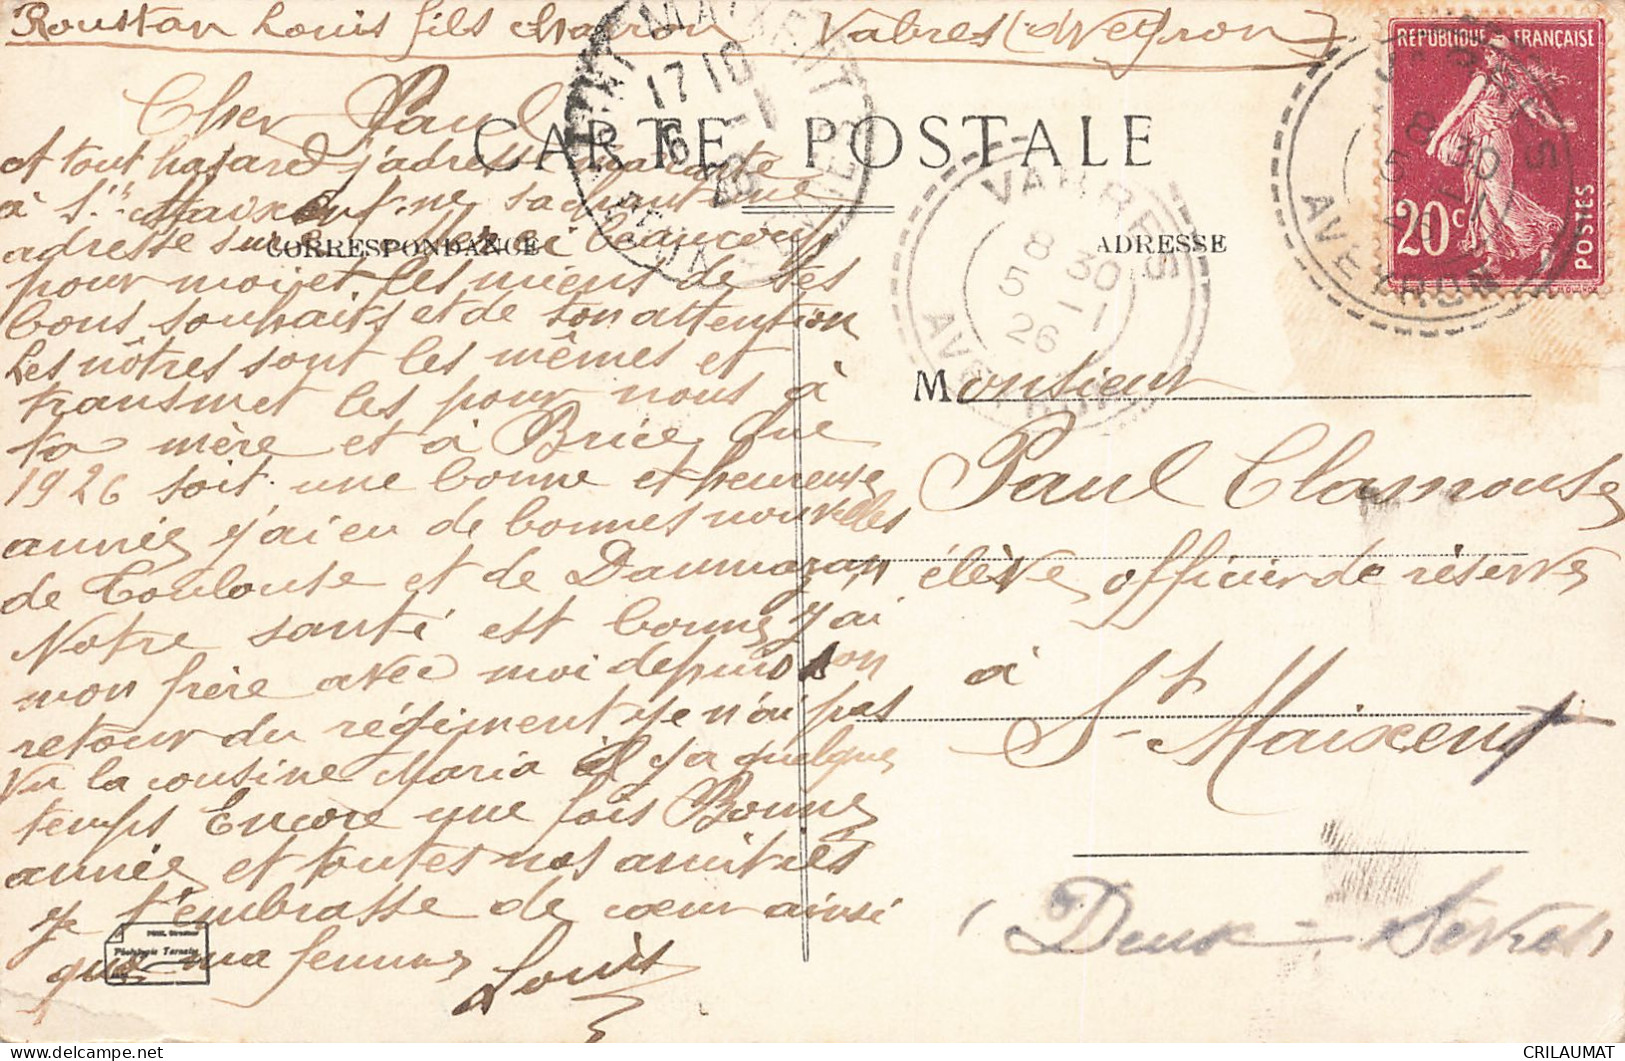 Roustan Louis fils charron Vabres (Aveyron)
RÉPUBLIQUE FRANÇAISE
20c
POSTES
VABRES
8 30
5 1
26
AVEYRON
17 10
6 1
26
CARTE POSTALE
CORRESPONDANCE
ADRESSE
Cher Paul
A tout hasard j'adresse ma carte
à St Maixent ne sachant une
adresse sure Merci beaucoup
pour moi et les miens de tes
bons souhaits et de ton attention
Les nôtres sont les mêmes et
transmet les pour nous à
ta mère et à Brice, que
1926 soit une bonne et heureuse
année, j'ai eu de bonnes nouvelles
de Toulouse et de Daumazan
Notre santé est bonne, j'ai
mon frère avec moi depuis son
retour du régiment je n'ai pas
vu la cousine Maria il y a quelque
temps Encore une fois Bonne
année et toutes nos amitiés
je t'embrasse de cœur ainsi
que ma femme
Louis
Monsieur
Paul Clamouse
élève officier de réserve
à
St Maixent
(Deux-Sèvres)
CRILAUMAT